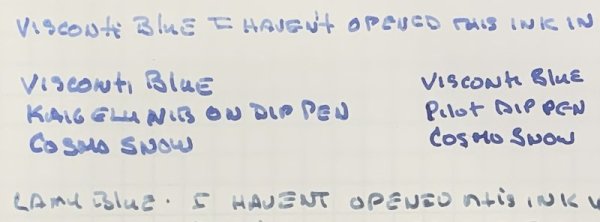 Visconti Blue I HAVEN'T OPENED THIS INK IN
Visconti Blue
NIB ON DIP PEN
COSMO SNOW
Visconti Blue
Pilot DIP PEN
COSMO SNOW
LAMY Blue. I HAVENT OPENED this INK